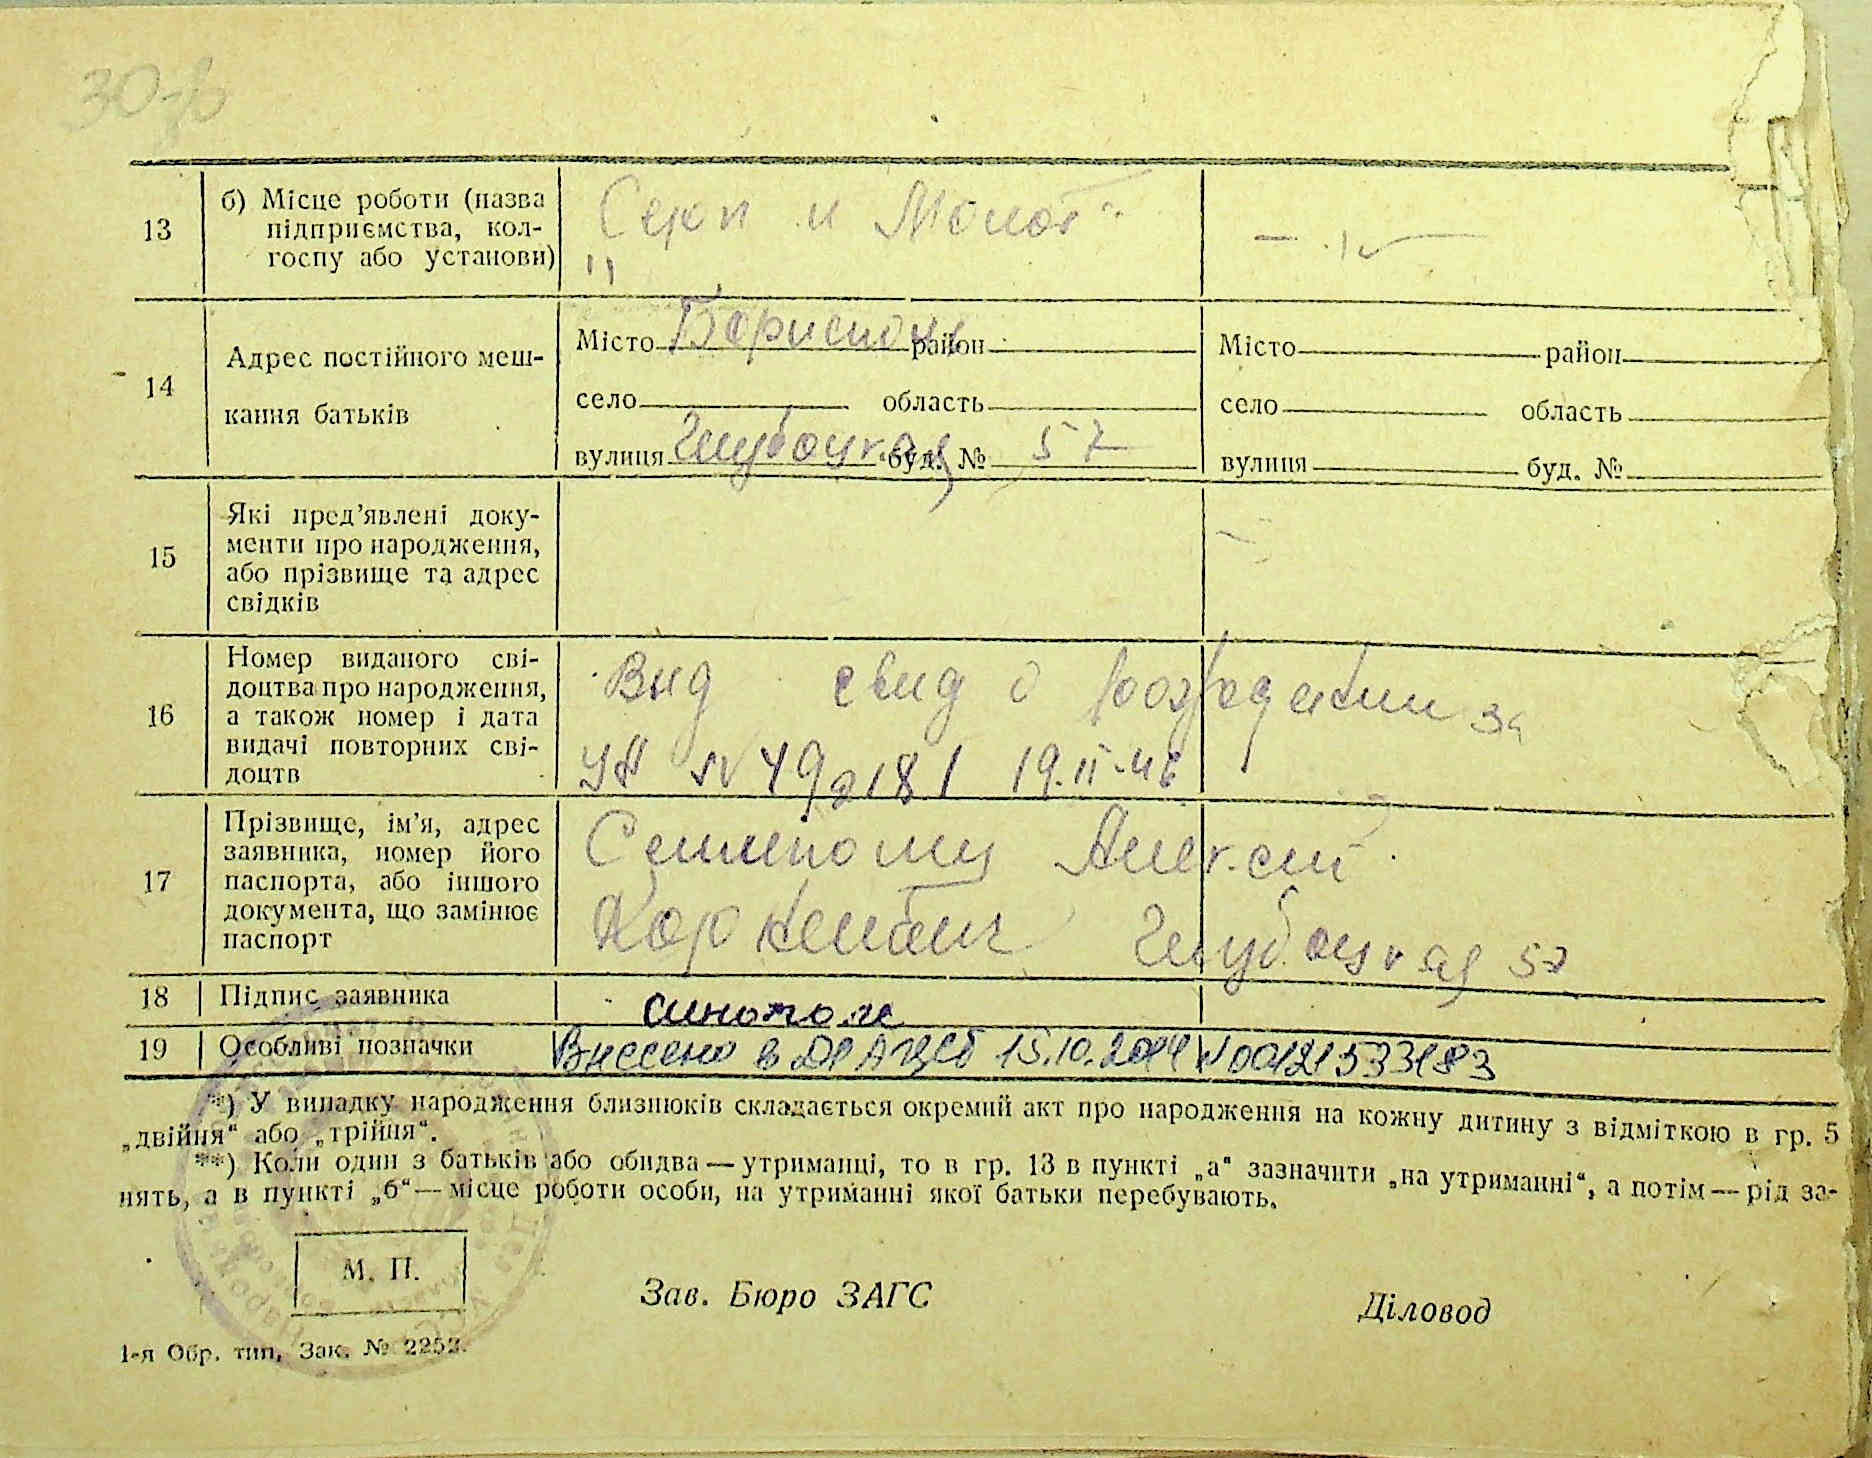 30-б
13
б) Місце роботи (назва
підприємства, кол-
госпу або установи)
"Серп и Молот"
14
Адрес постійного меш-
кання батьків
Місто Бориспол район
село область
вулиця Глубоцкая буд. № 57
Місто район
село область
вулиця буд. №
15
Які пред’явлені доку-
менти про народження,
або прізвище та адрес
свідків
16
Номер виданого сві-
доцтва про народження,
а також номер і дата
видачі повторних сві-
доцтв
Выд свид о за
№ 19.II-46
17
Прізвище, ім’я, адрес
заявника, номер його
паспорта, або іншого
документа, що замінює
паспорт
Глубоцкая 57
18
Підпис заявника
19
Особливі позначки
Внесено в ДРАЦСб 15.10.2014 №00121533183
*) У випадку народження близнюків складається окремий акт про народження на кожну дитину з відміткою в гр. 5
„двійня“ або „трійня“.
**) Коли один з батьків або обидва — утриманці, то в гр. 13 в пункті „а“ зазначити „на утриманні“, а потім — рід за-
нять, а в пункті „б“ — місце роботи особи, на утриманні якої батьки перебувають.
М. П.
Зав. Бюро ЗАГС
Діловод
1-я Обр. тип, Зак. № 2252.